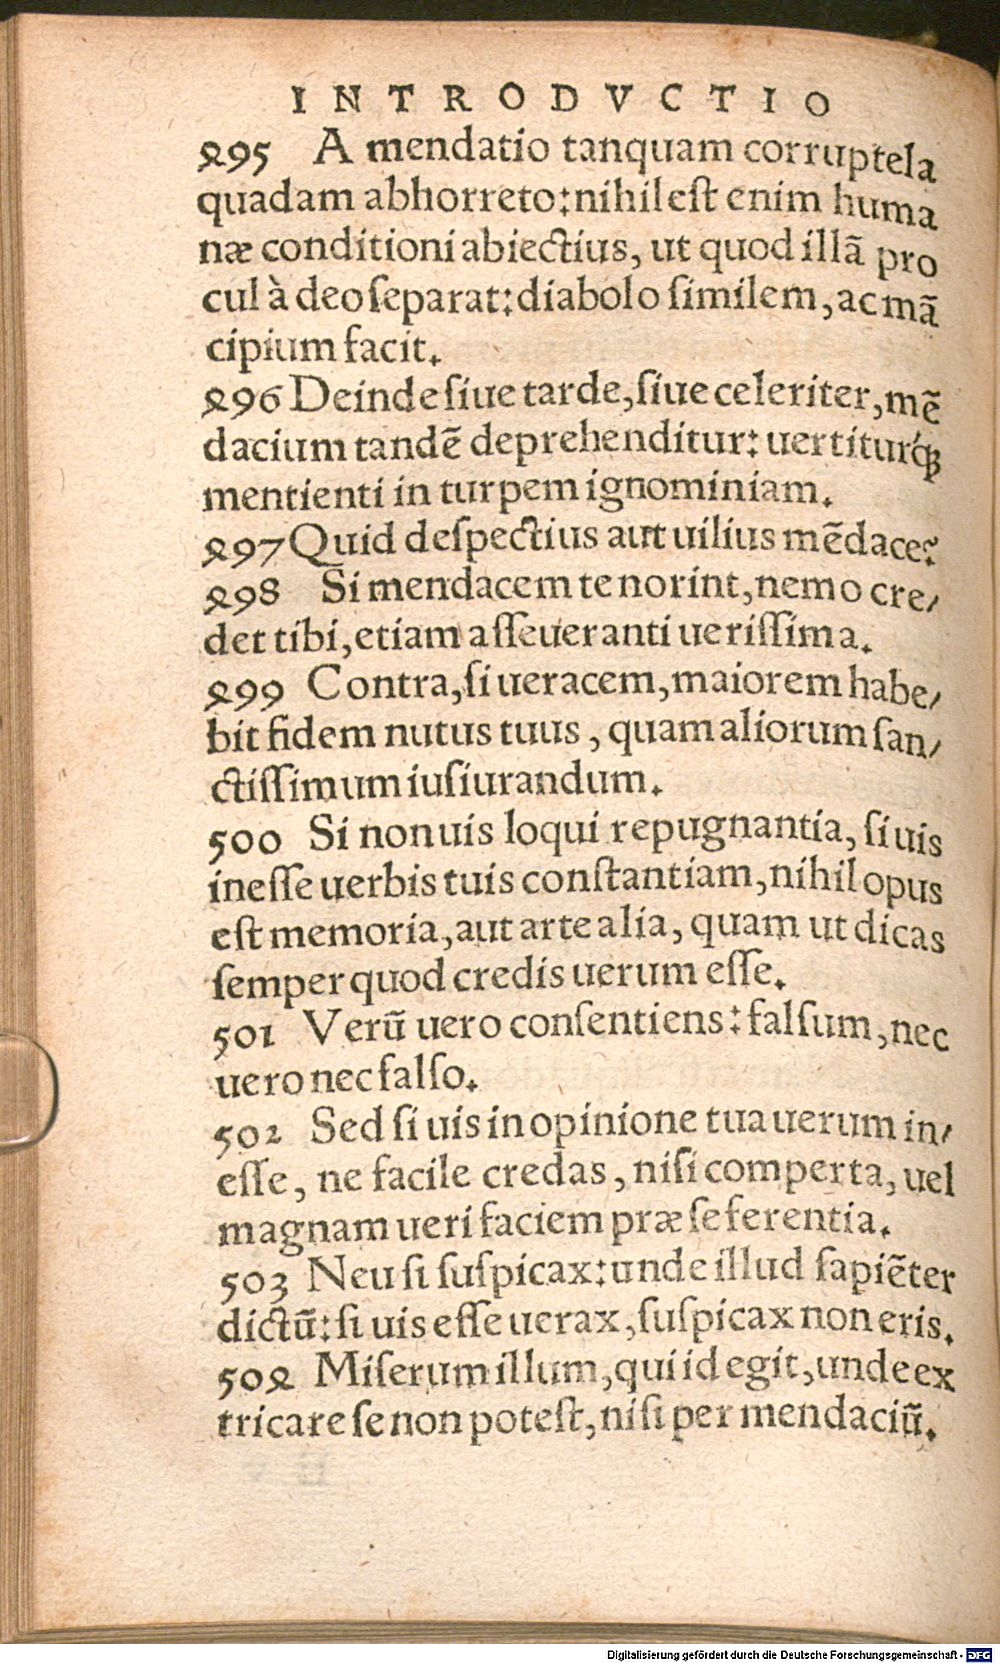 INTRODVCTIO
495 A mendatio tanquam corruptela
quadam abhorreto: nihil eſt enim huma
næ conditioni abiectius, ut quod illã pro
cul à deo ſeparat: diabolo ſimilem, ac mã
cipium facit.
496 Deinde ſiue tarde, ſiue celeriter, mẽ
dacium tandẽ deprehenditur: uertiturq́ꝫ
mentienti in turpem ignominiam.
497 Quid deſpectius aut uilius mẽdace?
498 Si mendacem te norint, nemo cre/
det tibi, etiam aſſeueranti ueriſſima.
499 Contra, ſi ueracem, maiorem habe/
bit fidem nutus tuus, quam aliorum ſan/
ctiſſimum iuſiurandum.
500 Si non uis loqui repugnantia, ſi uis
ineſſe uerbis tuis conſtantiam, nihil opus
eſt memoria, aut arte alia, quam ut dicas
ſemper quod credis uerum eſſe.
501 Verũ uero conſentiens: falſum, nec
uero nec falſo.
502 Sed ſi uis in opinione tua uerum in/
eſſe, ne facile credas, niſi comperta, uel
magnam ueri faciem præ ſe ferentia.
503 Neu ſi ſuſpicax: unde illud ſapiẽter
dictũ: ſi uis eſſe uerax, ſuſpicax non eris.
504 Miſerum illum, qui id egit, unde ex
tricare ſe non poteſt, niſi per mendaciũ.
Digitalisierung gefördert durch die Deutsche Forschungsgemeinschaft - DFG